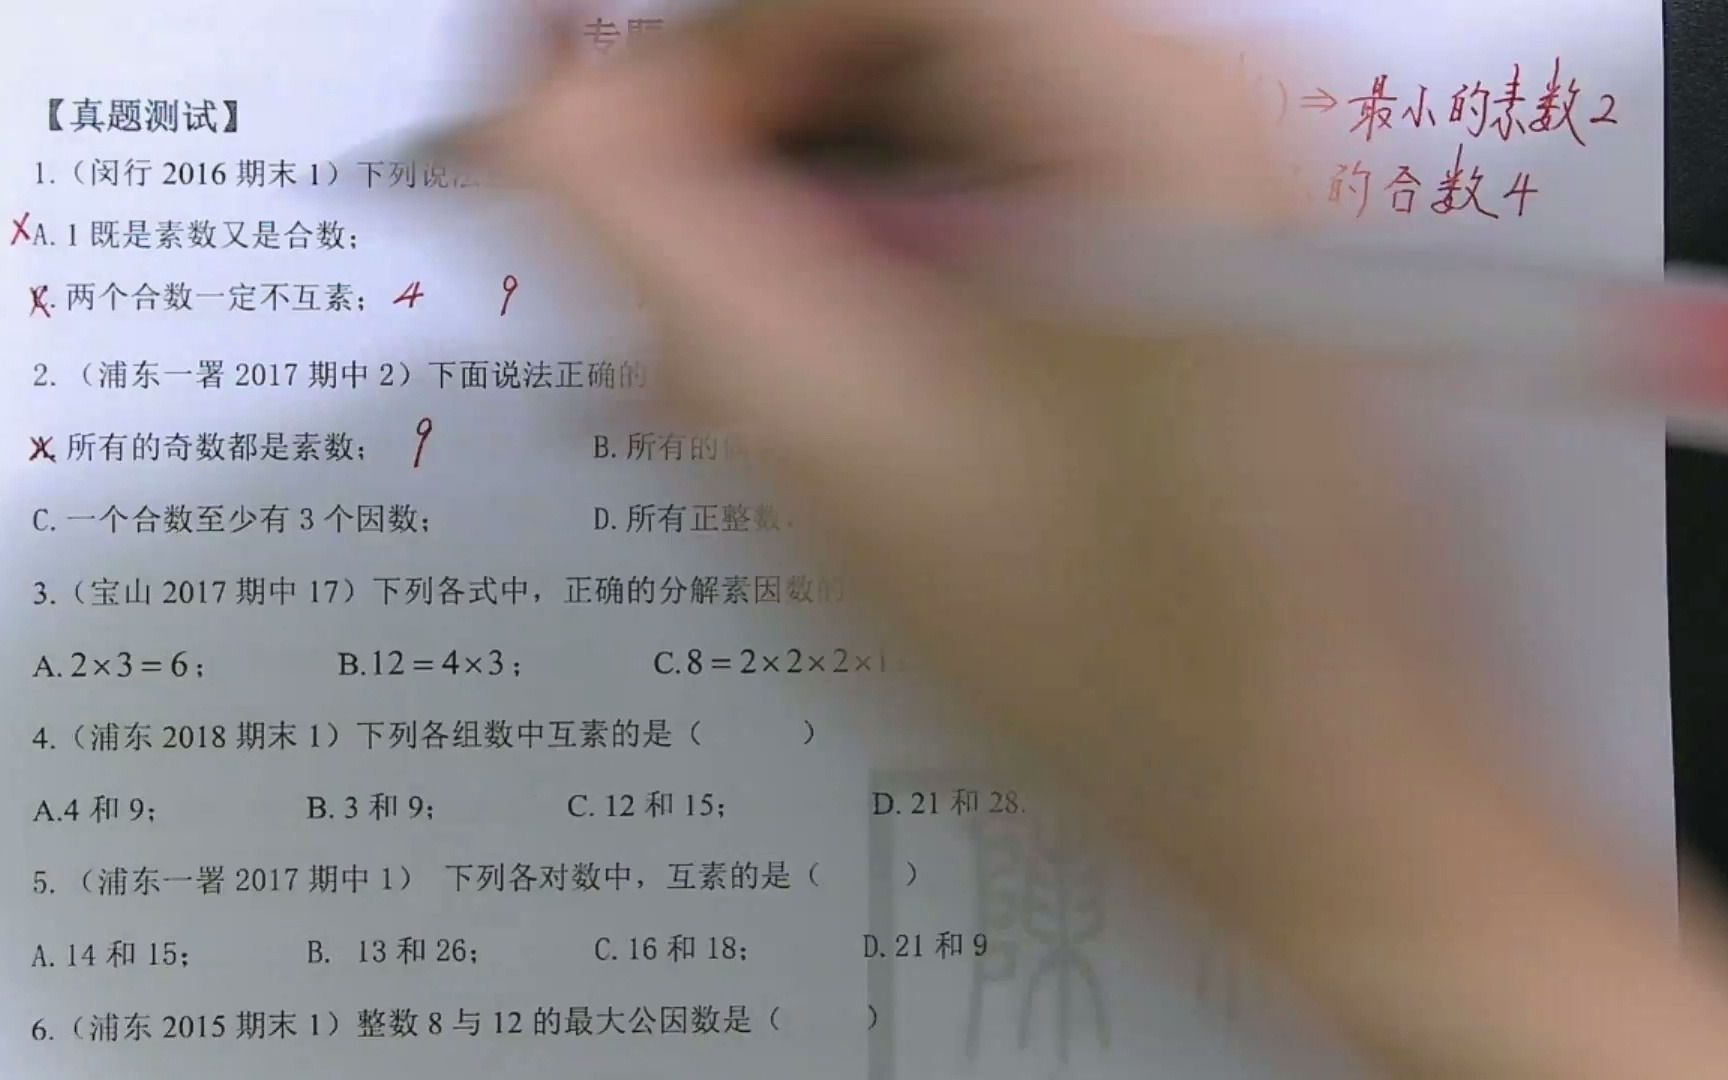 专题
⇒最小的素数2
的合数4
【真题测试】
1.（闵行 2016 期末 1）下列说法
A. 1 既是素数又是合数；
两个合数一定不互素； 4 9
2. （浦东一署 2017 期中 2）下面说法正确的
所有的奇数都是素数； 9 B. 所有的
C. 一个合数至少有 3 个因数； D. 所有正整数
3.（宝山 2017 期中 17）下列各式中，正确的分解素因数的
A. 2×3＝6； B.12＝4×3； C. 8＝2×2×2×1
4.（浦东 2018 期末 1）下列各组数中互素的是（ ）
A.4 和 9； B. 3 和 9； C. 12 和 15； D. 21 和 28.
5. （浦东一署 2017 期中 1） 下列各对数中，互素的是（ ）
A. 14 和 15； B. 13 和 26； C. 16 和 18； D. 21 和 9
6.（浦东 2015 期末 1）整数 8 与 12 的最大公因数是（ ）